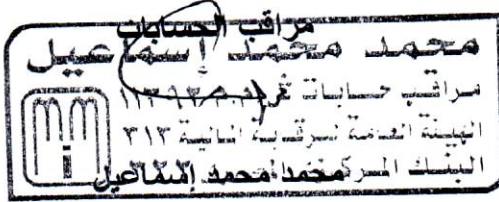 مراقب الحسابات
محمد محمد إسماعيل
مراقب حسابات
الهيئة العامة للرقابة المالية ٣١٣
البنك المركزي
محمد محمد إسماعيل